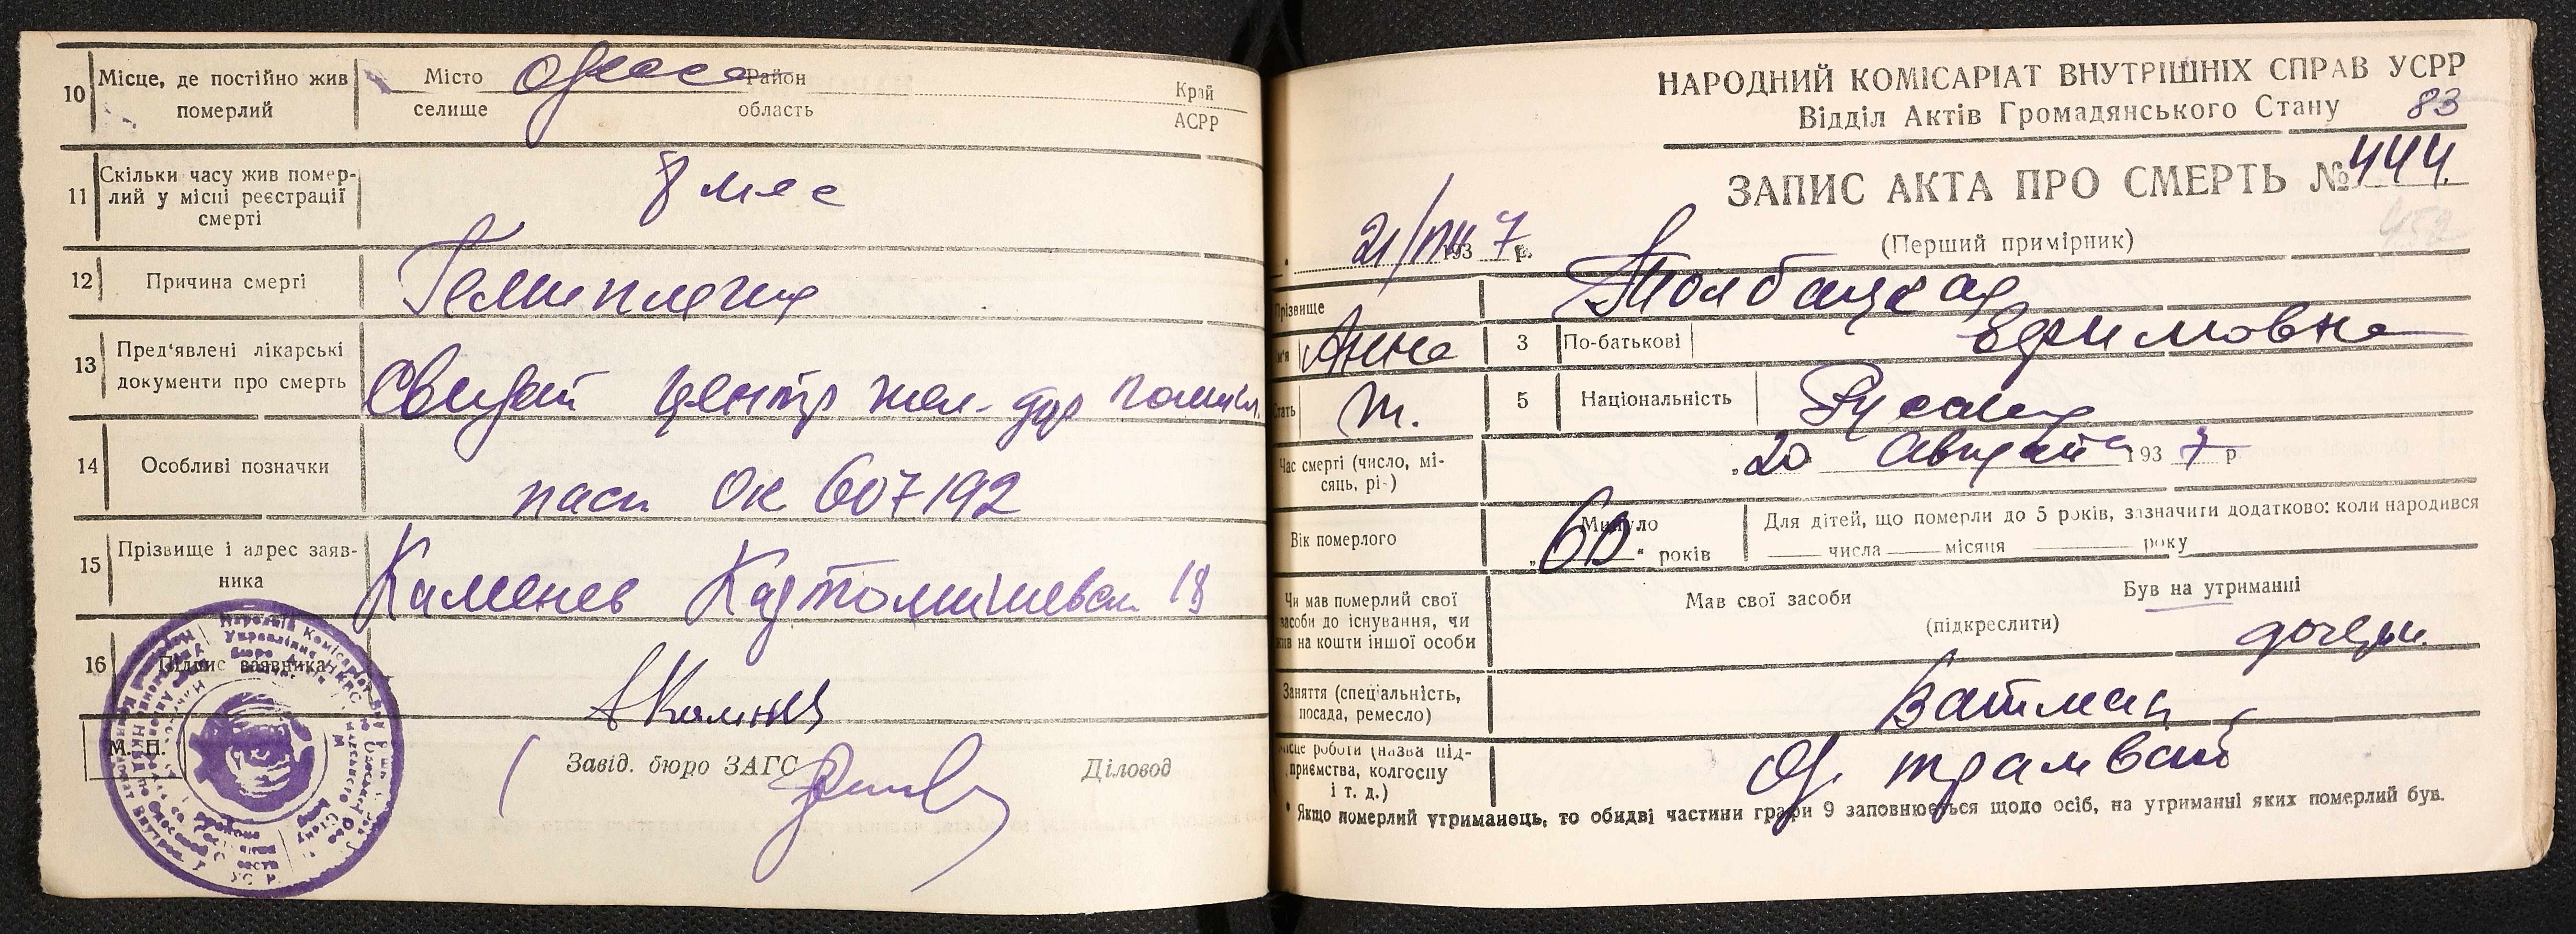 10 Місце, де постійно жив померлий
Місто селище Одесса Район область Край АСРР
11 Скільки часу жив помер-
лий у місці реєстрації
смерті
8 мес
12 Причина смерті Гемиплегия
13 Пред'явлені лікарські
документи про смерть
Свидет центр жел-дор поликл.
14 Особливі позначки
пасп ОК 607192
15 Прізвище і адрес заяв-
ника
Каменев Картомишевск 18
16 Підпис заявника
АКаменев
М. П.
Завід. бюро ЗАГС Діловод
НАРОДНИЙ КОМІСАРІАТ ВНУТРІШНІХ СПРАВ УСРР
Відділ Актів Громадянського Стану 83
ЗАПИС АКТА ПРО СМЕРТЬ № 444.
452
21/VIII 1937 р. (Перший примірник)
Прізвище
Анна 3 По-батькові Ефимовна
Стать 5 Національність Русская
Час смерті (число, мі-
сяць, рік)
„20 августа 1937 р
Вік померлого
Минуло
„60" років
Для дітей, що померли до 5 років, зазначити додатково: коли народився
числа місяця року
Чи мав померлий свої
засоби до існування, чи
жив на кошти іншої особи
Мав свої засоби Був на утриманні
(підкреслити)
дочери.
Заняття (спеціальність,
посада, ремесло)
Ватман
Місце роботи (назва під-
приємства, колгоспу
і т. д.)
Од. трамвай
* Якщо померлий утриманець, то обидві частини графи 9 заповнюється щодо осіб, на утриманні яких померлий був.